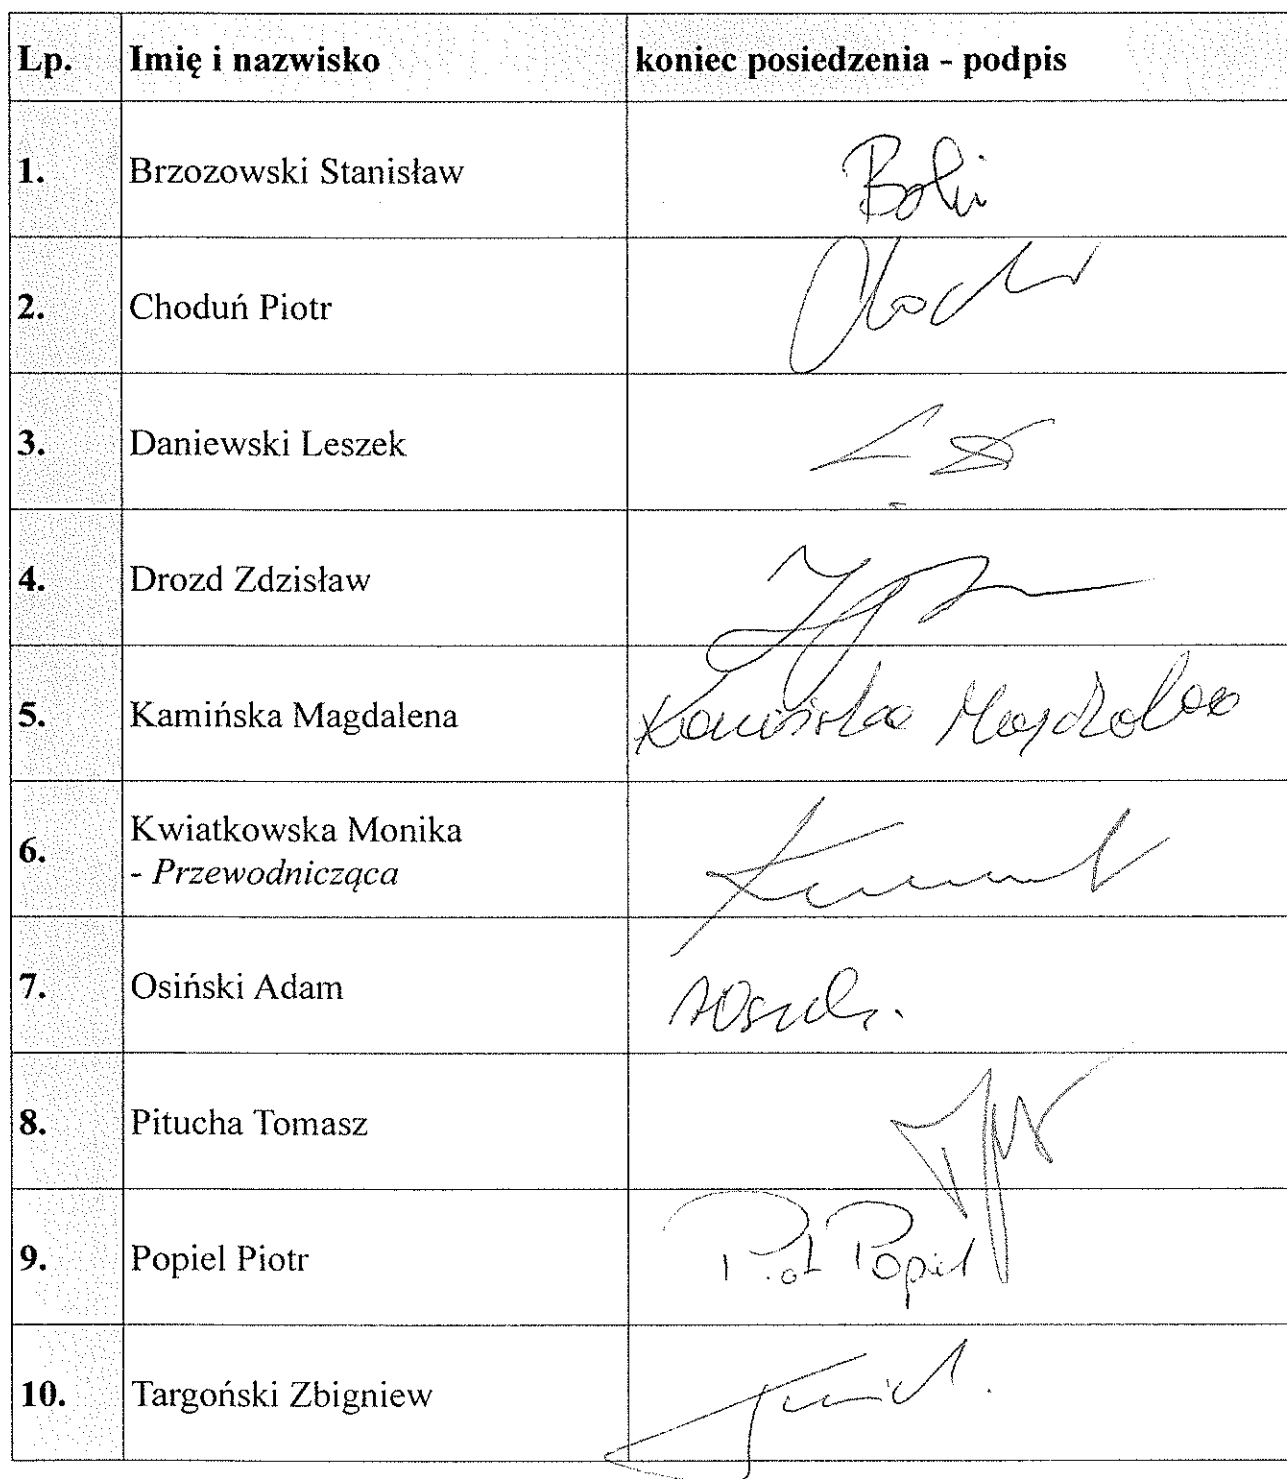 Lp. Imię i nazwisko koniec posiedzenia - podpis
1. Brzozowski Stanisław
2. Choduń Piotr
3. Daniewski Leszek
4. Drozd Zdzisław
5. Kamińska Magdalena Kamińska Magdalena
6. Kwiatkowska Monika
- Przewodnicząca
7. Osiński Adam
8. Pitucha Tomasz
9. Popiel Piotr Piotr Popiel
10. Targoński Zbigniew